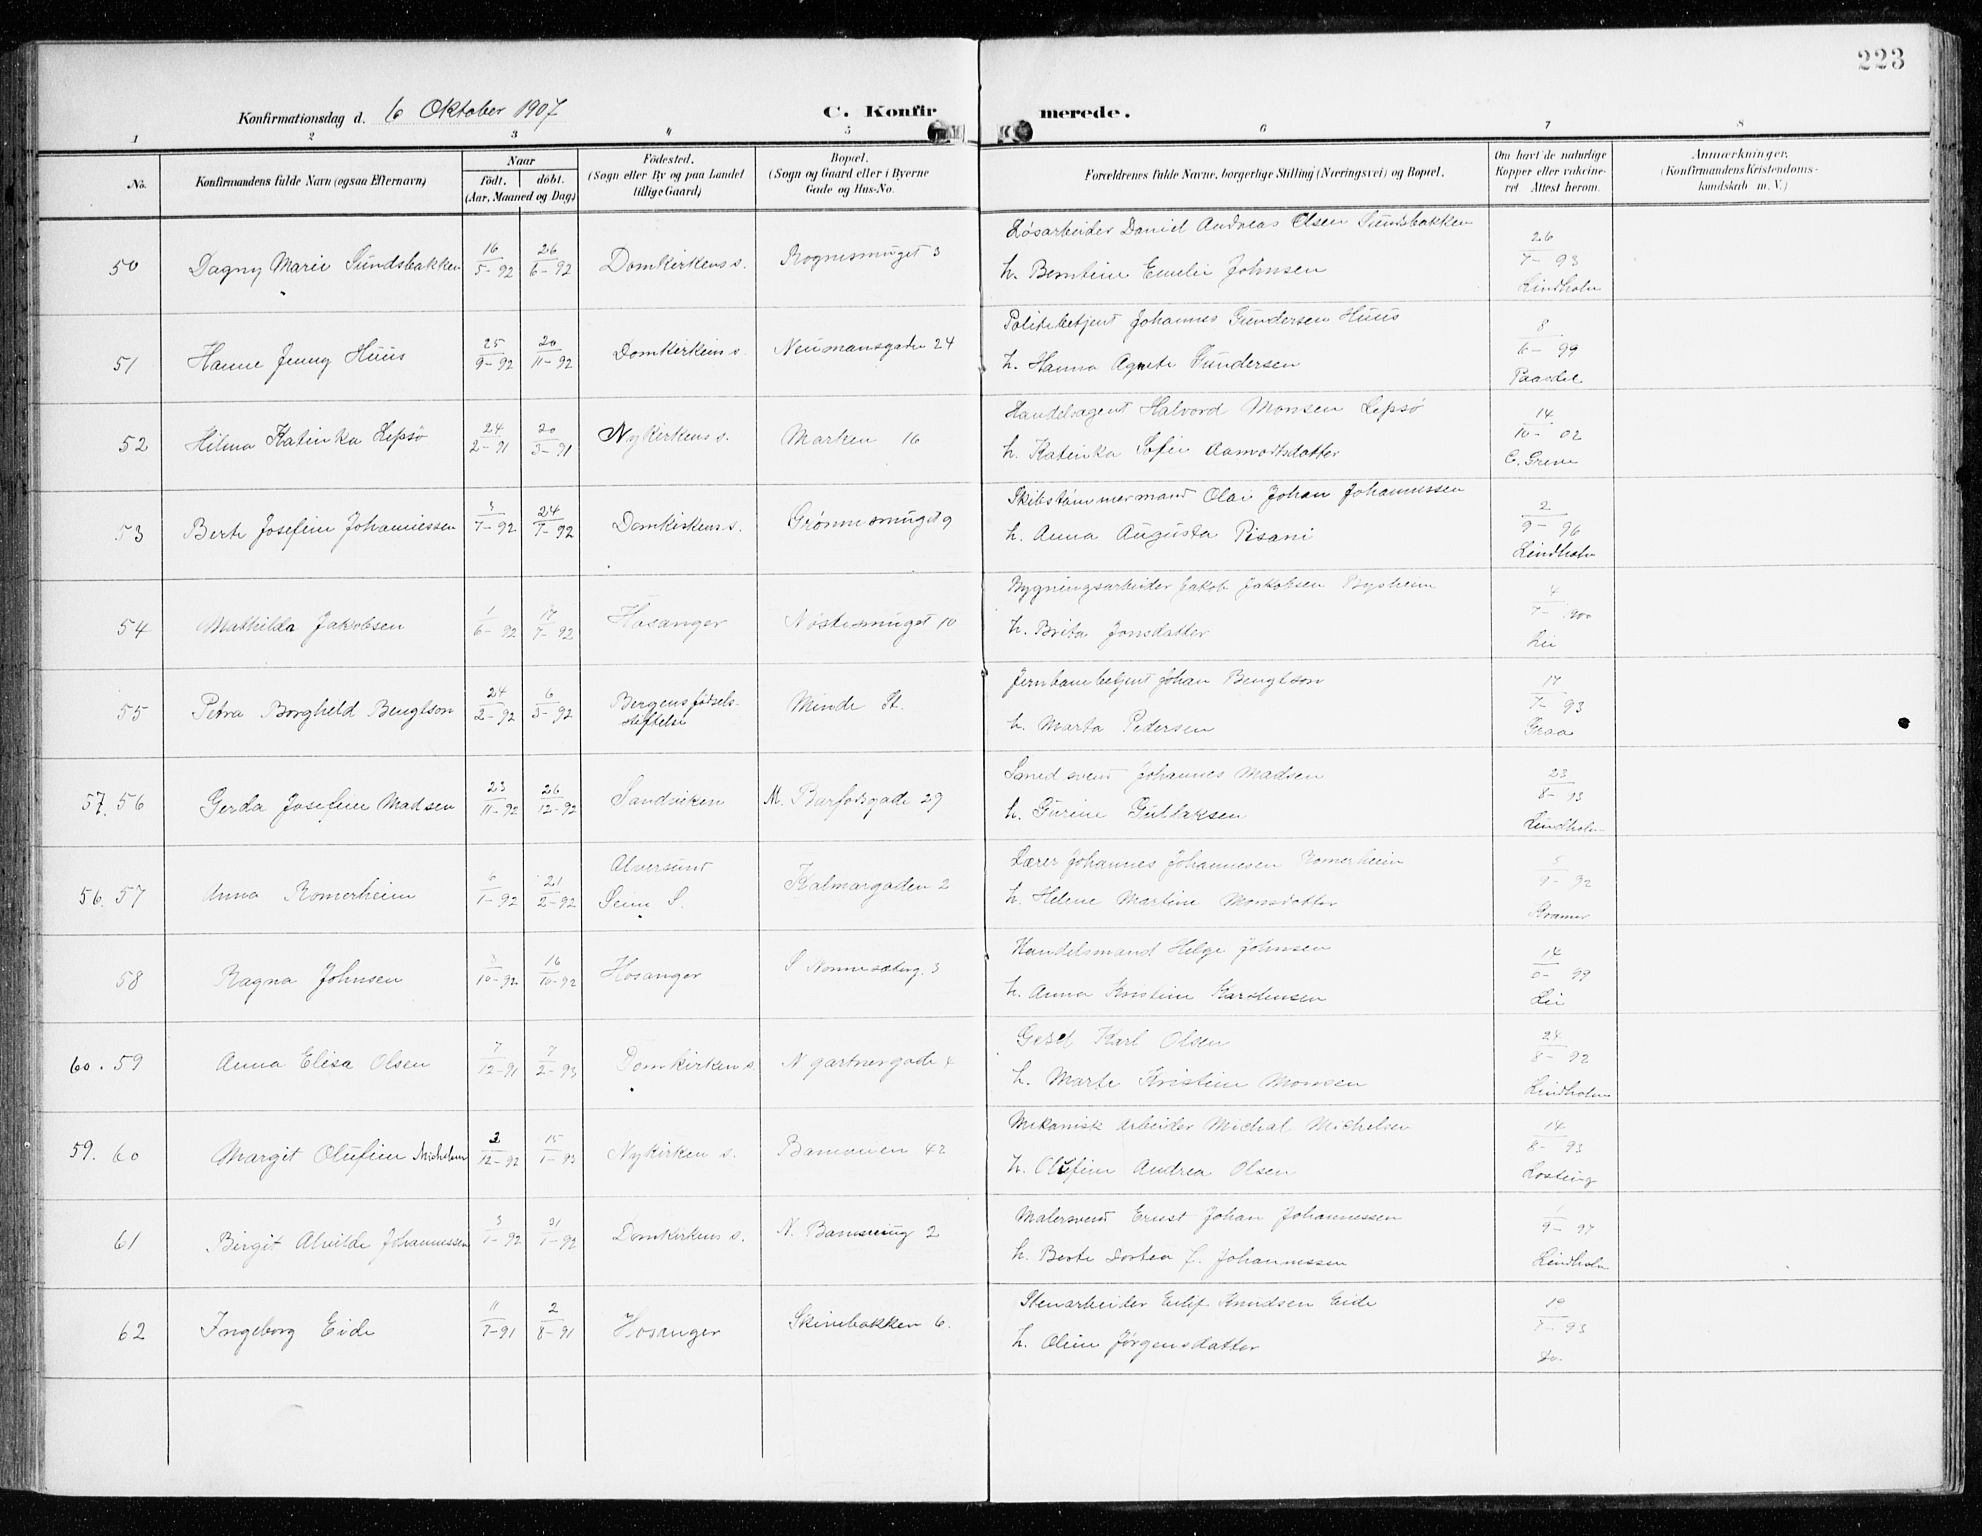 223
Konfirmationsdag d. 6 Oktober 1907 C. Konfirmerede.
1 2 3 4 5 6 7 8
No. Konfirmandens fulde Navn (ogsaa Efternavn) Naar født. døbt. (Aar, Maaned og Dag) Fødested. (Sogn eller By og paa Landet tillige Gaard) Bopæl. (Sogn og Gaard eller i Byerne Gade og Hus-No. Forældrenes fulde Navne, borgerlige Stilling (Næringsvei) og Bopæl. Om havt de naturlige Kopper eller vakcineret. Attest herom. Anmærkninger. (Konfirmandens Kristendomskundskab m. V.)
50 Dagny Marie Sundsbakken 16/5-92 26/6-92 Domkirkens s. Rognesmuget 3 Løsarbeider Daniel Andreas Olsen Sundsbakken 26/7-93
h. Berntine Emilie Johnsen Lindholm
51 Hanne Jenny Huus 25/9-92 20/11-92 Domkirkens s. Neumansgaden 24 Politibetjent Johannes Gundersen Huus 8/6-99
h. Hanna Agnete Gundersen Paasdel
52 Hilma Katinka Lepsø 24/2-91 20/3-91 Nykirkens s. Marken 16 Handelsagent Halvord Monsen Lepsø 14/10-02
h. Katinka Sofie Aamodtsdatter C. Greve
53 Berte Josefine Johannessen 3/7-92 24/7-92 Domkirkens s. Grønnesmuget 9 Skibstømmermand Olai Johan Johannessen 2/9-96
h. Anna Augusta Pisani Lindholm
54 Mathilda Jakobsen 1/6-92 17/7-92 Hosanger Nøstesmuget 10 Bygningsarbeider Jakob Jakobsen Bysheim 4/7-
h. Brita Jonsdatter Lii
55 Petra Borghild Bengtson 24/2-92 6/3-92 Bergens fødselsstiftelse Minde St. Jernbanebetjent Johan Bengtson 17/7-93
h. Marta Pedersen Graa
57. 56 Gerda Josefine Madsen 23/11-92 26/12-92 Sandviken M. Barfodsgade 29 Smedsvend Johannes Madsen 23/8-93
h. Gurine Gullaksen Lindholm
56. 57 Anna Romerheim 6/1-92 21/2-92 Alversund Seim S. Kalmargaden 2 Lærer Johannes Johannesen Romerheim 5/9-92
h. Helene Martine Monsdatter Kramer
58 Ragna Johnsen 3/10-92 16/10-92 Hosanger S Nonnesæterg. 3 Handelsmand Helge Johnsen 14/6-99
h. Anna Kristine Karstensen Lii
60. 59 Anna Elisa Olsen 7/12-91 7/2-93 Domkirkens s. N gartnergade 4 Gesel Karl Olsen 24/8-92
h. Marte Kristine Monsen Lindholm
59. 60 Margit Olufine Michelsen 2/12-92 15/1-93 Nykirken s. 42 Mekanisk arbeider Michal Michelsen 14/8-93
h. Olufine Andrea Olsen Losting
61 Birgit Alvilde Johannessen 3/1-92 31/1-92 Domkirkens s. N. 2 Malersvend Ernst Johan Johannessen 1/9-97
h. Berte Dortea J. Johannessen Lindholm
62 Ingeborg Eide 11/7-91 2/8-91 Hosanger Skivebakken 6. Stenarbeider Eilif Knudsen Eide 19/7-93
h. Oline Jørgensdatter Do.